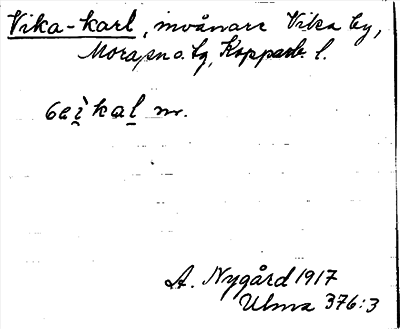 Vika-karl, invånare Vika by,
Mora sn o. tg, Kopparb. l.
kal m.
A. Nygård 1917
Ulma 376:3